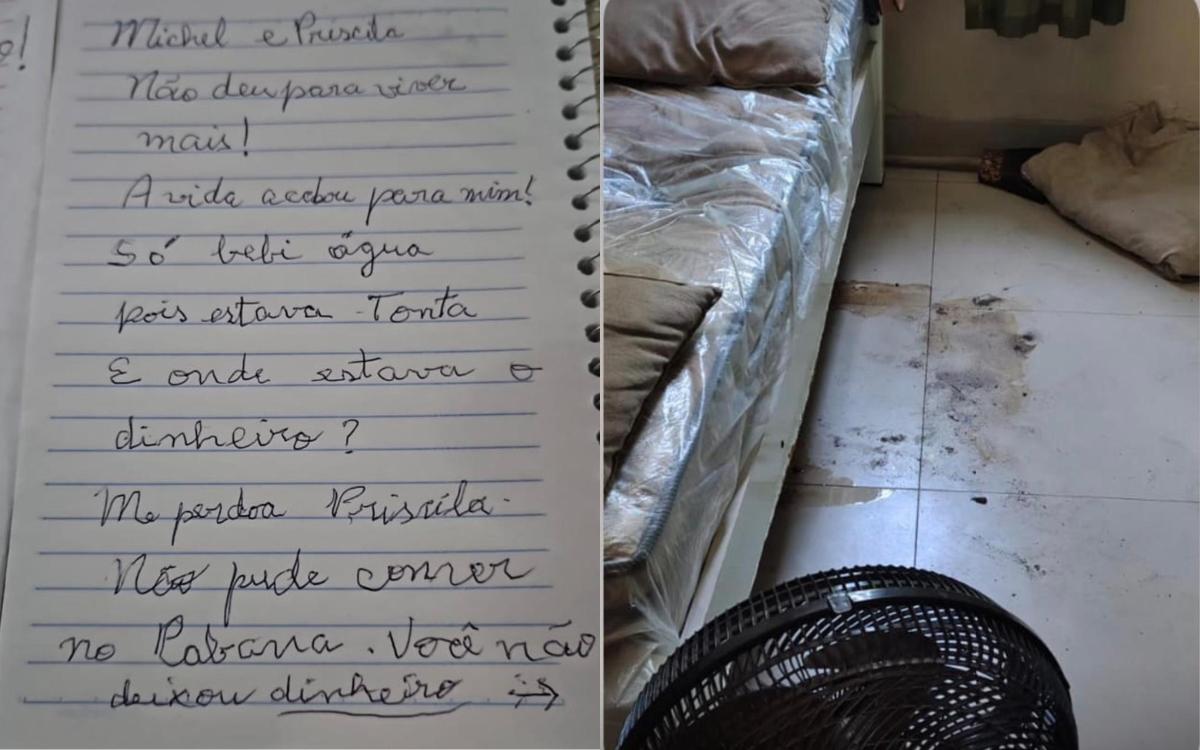 o!
Michel e Priscila
Não deu para viver
mais!
A vida acabou para mim!
Só bebi água
pois estava Tonta
E onde estava o
dinheiro?
Me perdoa Priscila.
Não pude comer
no Rabana. Você não
deixou dinheiro →